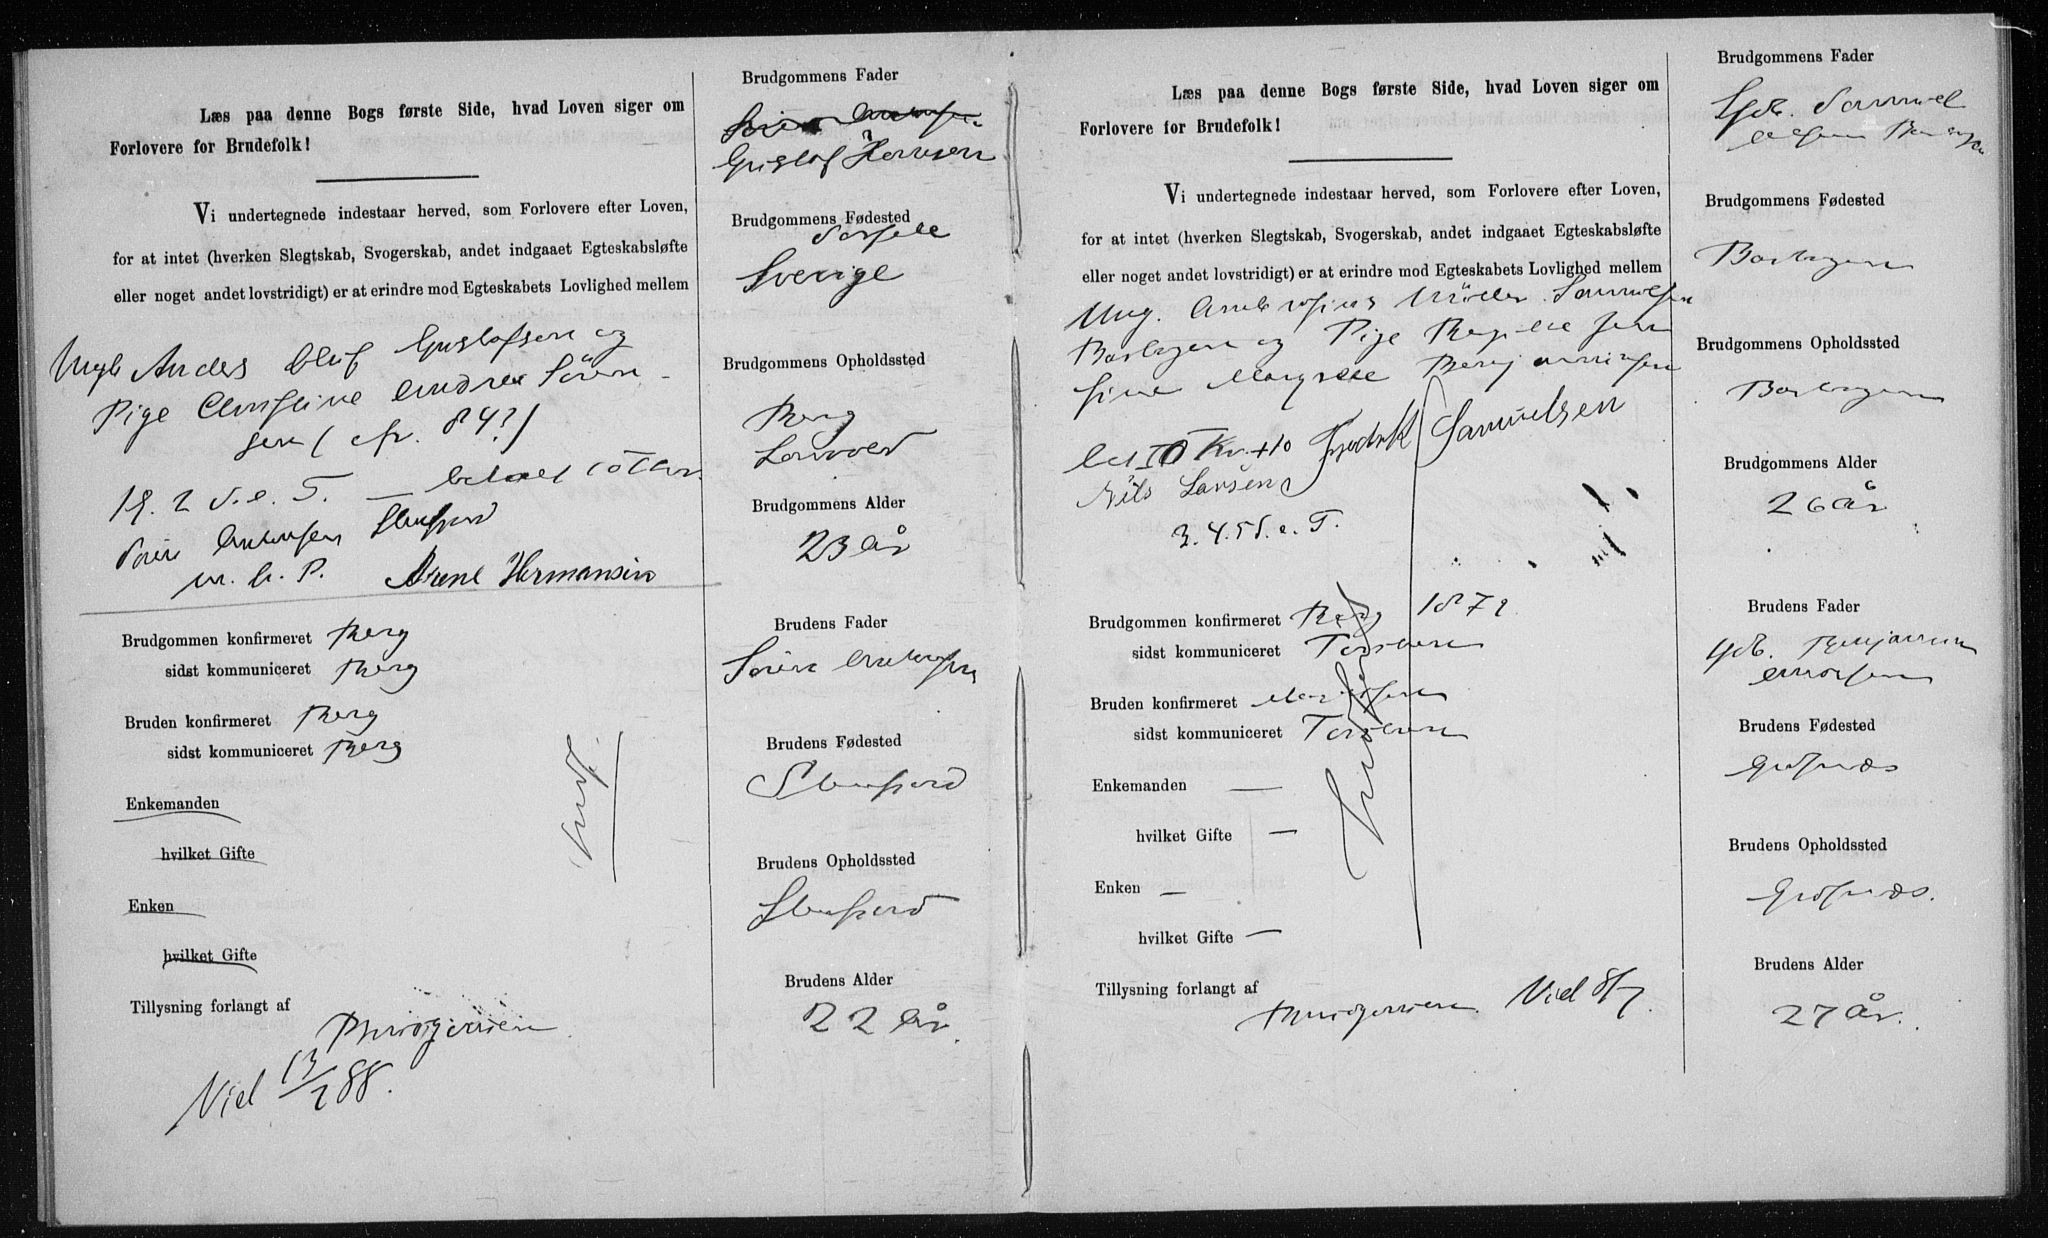 Læs paa denne Bogs første Side, hvad Loven siger om
Forlovere for Brudefolk!
Vi undertegnede indestaar herved, som Forlovere efter Loven,
for at intet (hverken Slegtskab, Svogerskab, andet indgaaet Egteskabsløfte
eller noget andet lovstridigt) er at erindre mod Egteskabets Lovlighed mellem
Anders Oluf Gustafsen og
Pige Christine Andrea Sören-
sen (cfr. 84?)
19. 2 S. e. T. — betalt
Sören Andersen Stensfjord
m. h. P. Arene Hermansen
Brudgommen konfirmeret Berg
sidst kommuniceret Berg
Bruden konfirmeret Berg
sidst kommuniceret Berg
Enkemanden
hvilket Gifte
Enken
hvilket Gifte
Tillysning forlangt af
Brudgommen
Viel 13/7 88.
Brudgommens Fader
Gustaf
Brudgommens Fødested
Sorsele
Sverige
Brudgommens Opholdssted
Berg
Brudgommens Alder
23 År
Brudens Fader
Sören Andersen
Brudens Fødested
Stensfjord
Brudens Opholdssted
Stensfjord
Brudens Alder
22 År.
Læs paa denne Bogs første Side, hvad Loven siger om
Forlovere for Brudefolk!
Vi undertegnede indestaar herved, som Forlovere efter Loven,
for at intet (hverken Slegtskab, Svogerskab, andet indgaaet Egteskabsløfte
eller noget andet lovstridigt) er at erindre mod Egteskabets Lovlighed mellem
Ung. Ambrosius Möller Samuelsen
og Pige
Margrete Benjaminsen
Kr. + 10 Fredrik Samuelsen
Nils Larsen
3. 4. 5 S. e. T.
Brudgommen konfirmeret Berg 1879
sidst kommuniceret Torsken
Bruden konfirmeret
sidst kommuniceret Torsken
Enkemanden —
hvilket Gifte —
Enken —
hvilket Gifte —
Tillysning forlangt af
Brudgommen. Viel 8/7.
Brudgommens Fader
Samuel
Brudgommens Fødested
Brudgommens Opholdssted
Brudgommens Alder
26 År
Brudens Fader
Gdb. Benjamin
Brudens Fødested
Grasfnæs
Brudens Opholdssted
Brudens Alder
27 År.